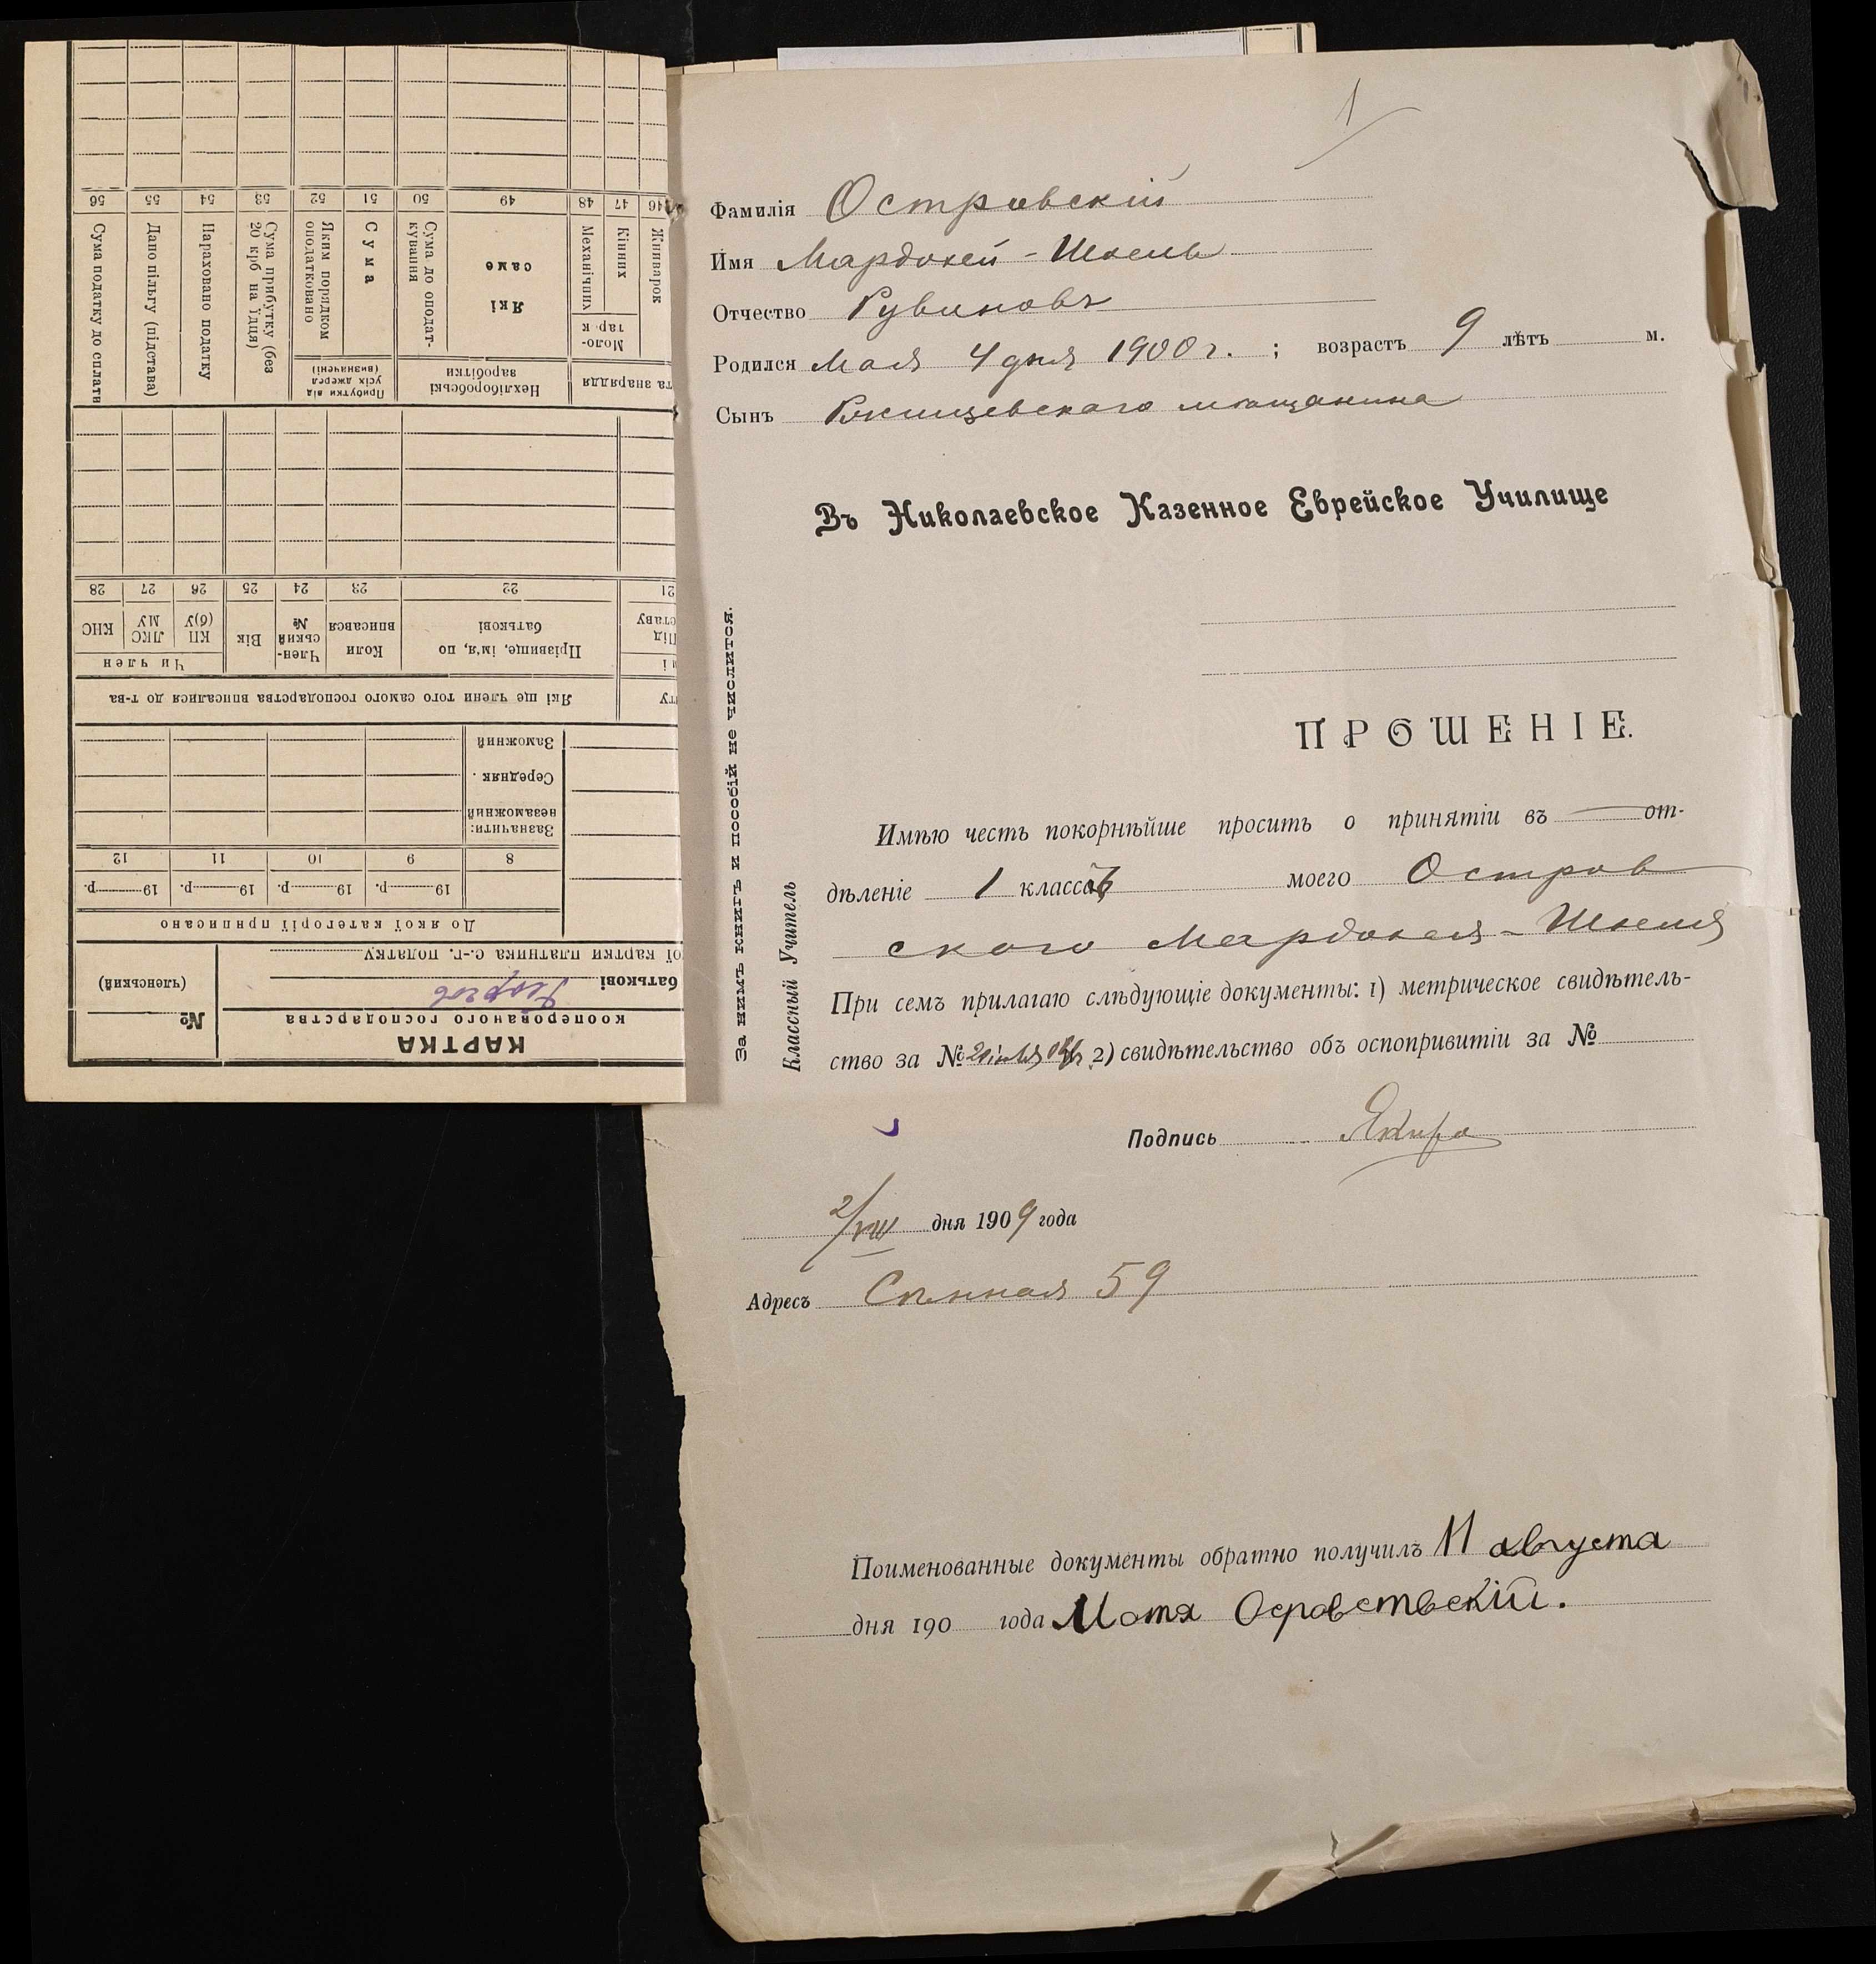 1
Фамилія Островскій
Имя Мардохей-Шхель
Отчество Рувиновъ
Родился Мая 4 дня 1900 г. ; возрастъ 9 лѣтъ м.
Сынъ мѣщанина
Въ Николаевское Казенное Еврейское Училище
ПРОШЕНІЕ.
Имѣю честь покорнѣйше просить о принятіи въ от-
дѣленіе 1 класса моего Остров
ского Мардохея-Шхеля
При семъ прилагаю слѣдующіе документы: 1) метрическое свидѣтель-
ство за № 2) свидѣтельство объ оспопривитіи за №
Подпись
2/VIII дня 1909 года
Адресъ Сѣнная 59
Поименованные документы обратно получилъ 11 августа
дня 190 года Мотя Осровствскій.
За нимъ книгъ и пособій не числится.
Классный Учитель
КАРТКА
кооперованого господарства
№
(членський)
батькові
ої картки платника с.-г. податку
До якої категорії приписано
19 р. 19 р. 19 р. 19 р.
8 9 10 11 12
Зазначити:
незаможний
Середняк
Заможний
Які ще члени того самого господарства вписалися до т-ва
Прізвище, ім'я, по
батькові
Коли
вписався
Член-
ський
№
Вік
Чи член
КП
(б)У
ЛКС
МУ
КНС
21 22 23 24 25 26 27 28
та знаряддя
Нехліборобські
заробітки
Прибутки від
усіх джерел
(визначені)
Жниварок
Кінних
Механічних
Моло-
тар к
Які
саме
Сума до оподат-
кування
Сума
Яким порядком
оподатковано
Сума прибутку (без
20 крб на їдця)
Нараховано податку
Дано пільгу (підстава)
Сума податку до сплати
46 47 48 49 50 51 52 53 54 55 56